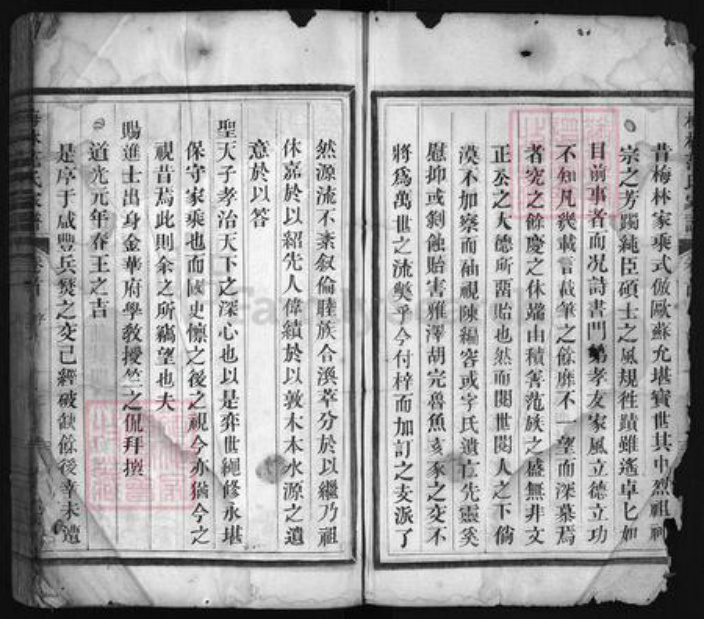 昔梅林家乘式倣歐蘇允堪寳世其中烈祖
宗之芳躅純臣碩士之風規徃蹟雖遙卓七如
目前事者而况詩書門第孝友家風立德立功
不知凡幾載言載筆之餘靡不一望而深慕焉
者究之餘慶之休端由積善范族之盛無非文
正公之大德所留貽也然而閱世閱人之下倘
漠不加察而袖視陳編容或字氏遺亡先靈奚
慰抑或剥蝕貽害雅澤胡完魯魚亥豕之变不
將爲萬世之流獘乎今付梓而加訂之支派了
然源流不紊叙倫睦族合渙萃分於以繼乃祖
休嘉於以紹先人偉績於以敦木本水源之遺
意於以答
聖天子孝治天下之深心也以是弈世繩修永堪
保守家乘也而國史懔之後之視今亦猶今之
視昔焉此則余之所竊望也夫
賜進士出身金華府學教授竺之侃拜撰
道光元年春王之吉
是序于咸豐兵燹之变已經破缺餘後幸未遭
氏家譜
卷首